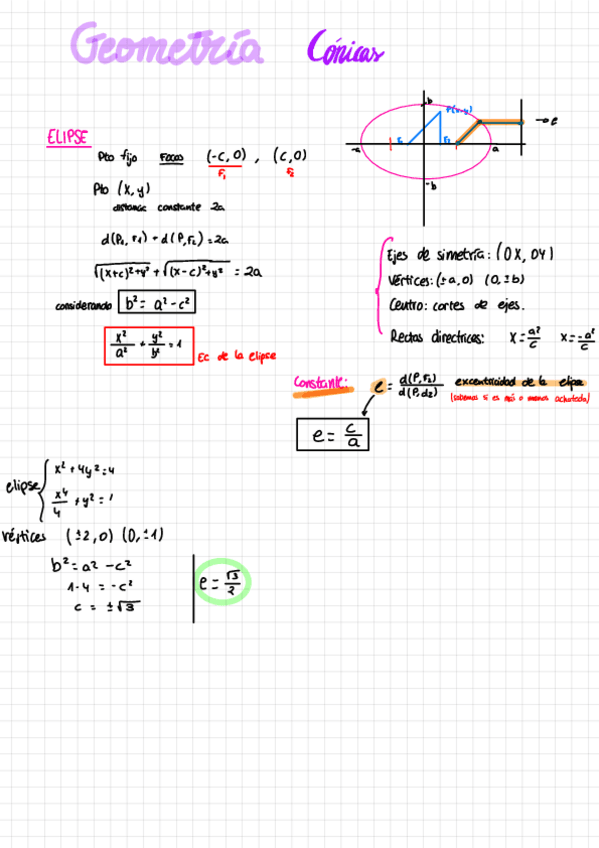 Geometría Cónicas
ELIPSE
Pto fijo Focos (-c, 0) , (c, 0)
F₁ F₂
Pto (x, y)
distancia constante 2a
d(P₁, F₁) + d(P, F₂) = 2a
√(x+c)²+y² + √(x-c)²+y² = 2a
considerando b² = a² - c²
x²/a² + y²/b² = 1 Ec de la elipse
b P(x-y) → e
-a F₁ F₂ a
-b
Ejes de simetría: (OX, OY)
Vértices: (±a, 0) (0, ±b)
Centro: cortes de ejes.
Rectas directrices: x = a²/c x = -a²/c
Constante: e = d(P, F₂)/d(P, d₂) excentricidad de la elipse
(sabemos si es más o menos achatada)
e = c/a
elipse { x² + 4y² = 4
x⁴/4 + y² = 1
vértices (±2, 0) (0, ±1)
b² = a² - c²
1-4 = -c²
c = ±√3
e = √3/2